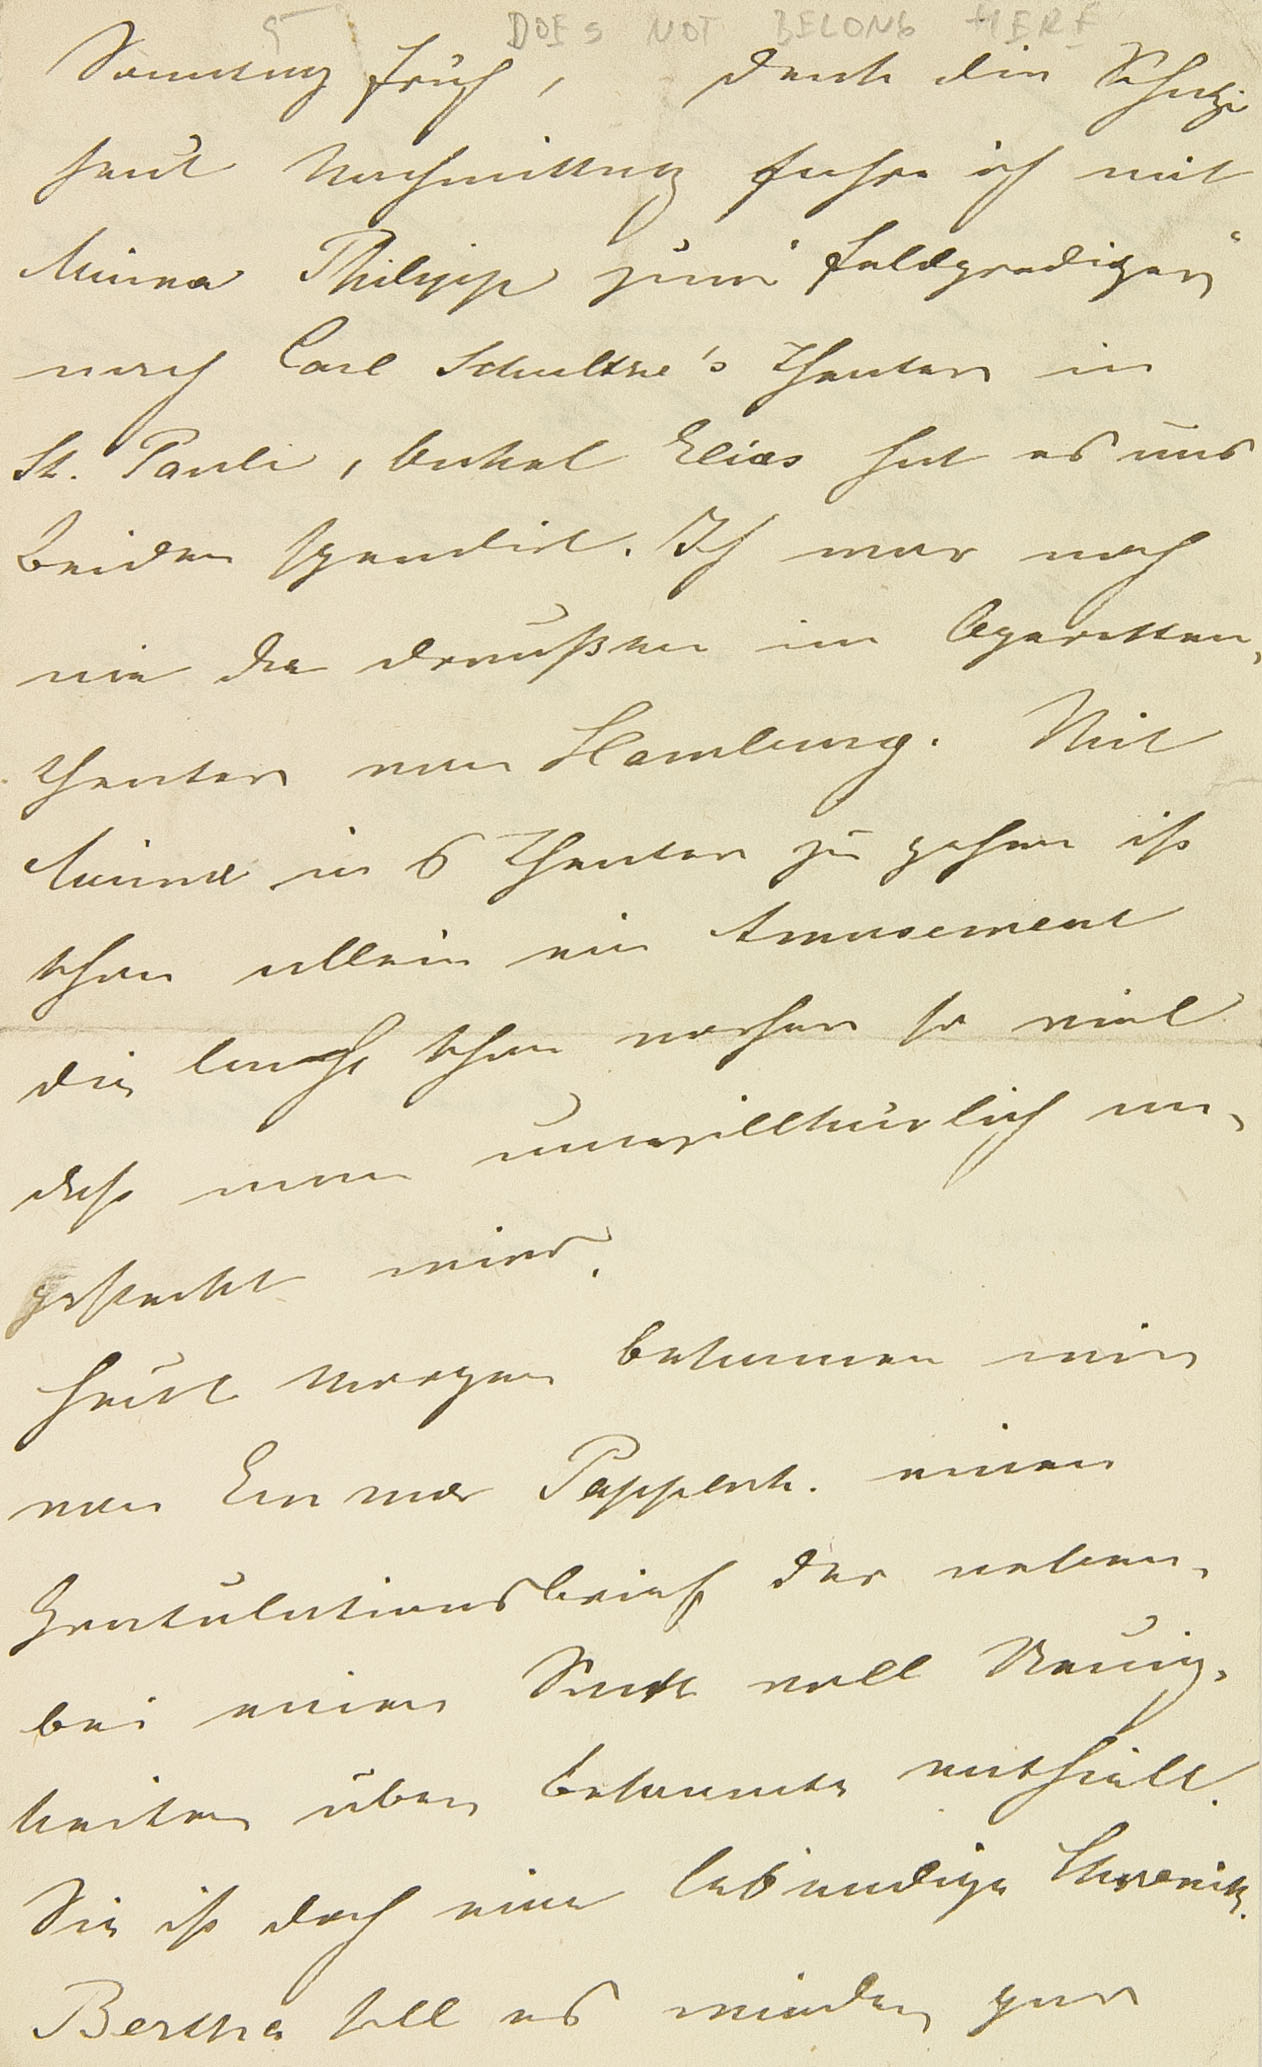 DOES NOT BELONG HERE
Sonntag früh, denk dir Schatzi
heut Nachmittag fahre ich mit
Minna Philipp zum "Feldprediger"
nach Carl Schultze's Theater in
St. Pauli, Onkel Elias hat es uns
beiden spendirt. Ich war noch
nie da draußen im Operetten-
theater von Hamburg. Mit
Minna in's Theater zu gehen ist
schon allein ein Amusement
die lacht schon vorher so viel
daß man unwillkürlich an-
gesteckt wird.
Heute Morgen bekamen wir
von Emma Pappenh. einen
Gratulationsbrief der neben-
bei einen Sack voll Neuig-
keiten über Bekannte enthielt.
Sie ist doch eine lebendige Chronik.
Bertha soll es wieder gar